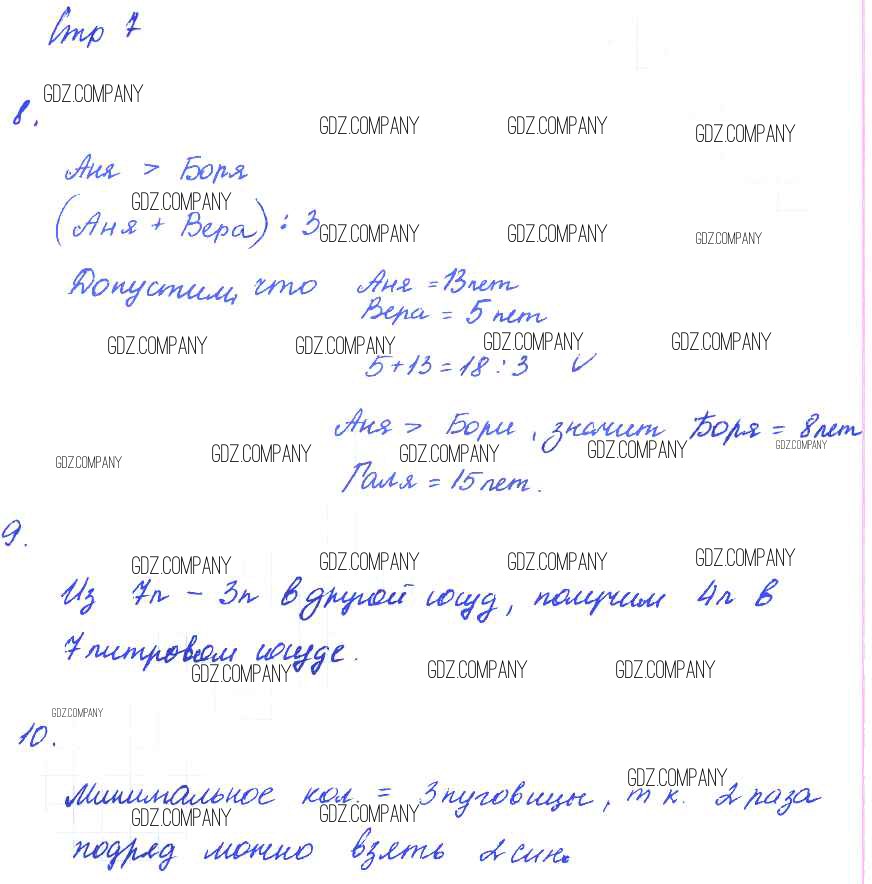 Стр 7
GDZ.COMPANY
8.
GDZ.COMPANY GDZ.COMPANY GDZ.COMPANY
Аня > Боря
GDZ.COMPANY
(Аня + Вера) : 3
GDZ.COMPANY GDZ.COMPANY GDZ.COMPANY
Допустим, что Аня = 13 лет
Вера = 5 лет
GDZ.COMPANY GDZ.COMPANY GDZ.COMPANY GDZ.COMPANY
5 + 13 = 18 : 3 ✓
Аня > Бори, значит Боря = 8 лет
GDZ.COMPANY GDZ.COMPANY GDZ.COMPANY GDZ.COMPANY GDZ.COMPANY
Галя = 15 лет.
9.
GDZ.COMPANY GDZ.COMPANY GDZ.COMPANY GDZ.COMPANY
Из 7л - 3л в другой сосуд, получим 4л в
7 литровом сосуде.
GDZ.COMPANY GDZ.COMPANY GDZ.COMPANY
GDZ.COMPANY
10.
GDZ.COMPANY
Минимальное кол. = 3 пуговицы, т к. 2 раза
GDZ.COMPANY GDZ.COMPANY
подряд можно взять 2 син.